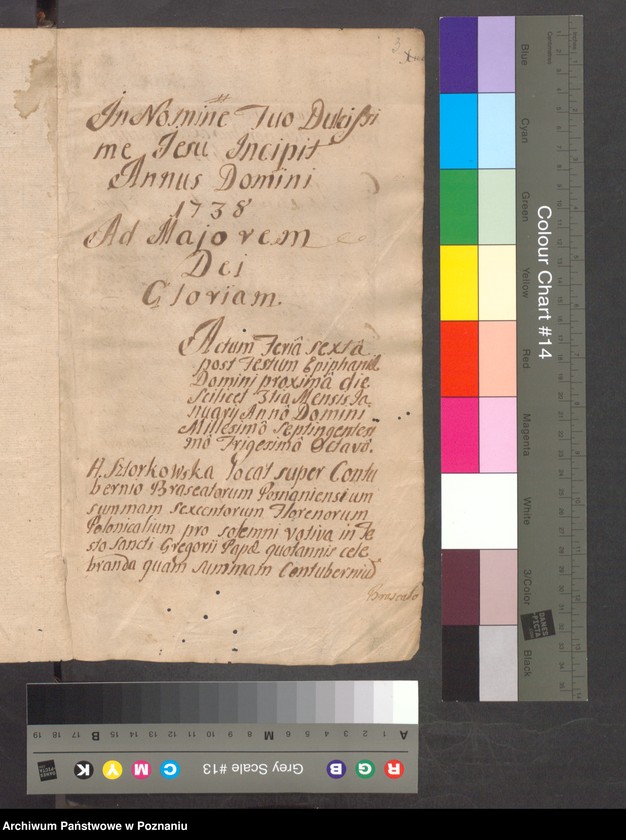 3
In Nomine Tuo Dulcissi
me Jesu Incipit
Annus Domini
1738
Ad Majorem
Dei
Gloriam.
Actum Feriâ sextâ
post Festum Epiphaniæ
Domini proximâ die
scilicet 3tia Mensis Ja
nuarij Annô Domini
Millesimô Septingentesi
mô Trigesimô Octavô.
A. Sztorkowska locat super Contu
bernio Braseatorum Posnaniensium
summam sexcentorum Florenorum
Polonicalium pro solemni votiva in Fe
sto Sancti Gregorii Papæ quotannis cele
branda quam summam Contuberniũ
Braseato
Colour Chart #14
Blue
Cyan
Green
Yellow
Red
Magenta
White
3/Color
Black
Grey Scale #13
A
M
B
R
G
B
C
M
Y
K
DANES
PICTA
Archiwum Państwowe w Poznaniu